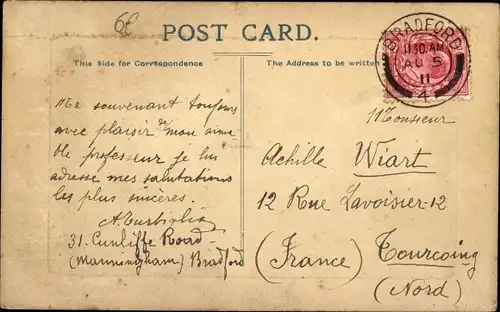 6f
POST CARD.
This Side for Correspondence
The Address to be written
BRADFORD
11.30 AM
AU 5
11
4
Me souvenant toujours
avec plaisir de mon aima
ble professeur je lui
adresse mes salutations
les plus sincères.
31. Cunliffe Road
(Manningham) Bradford
Monsieur
Achille Wiart
12 Rue Lavoisier-12
(France) Tourcoing
(Nord)